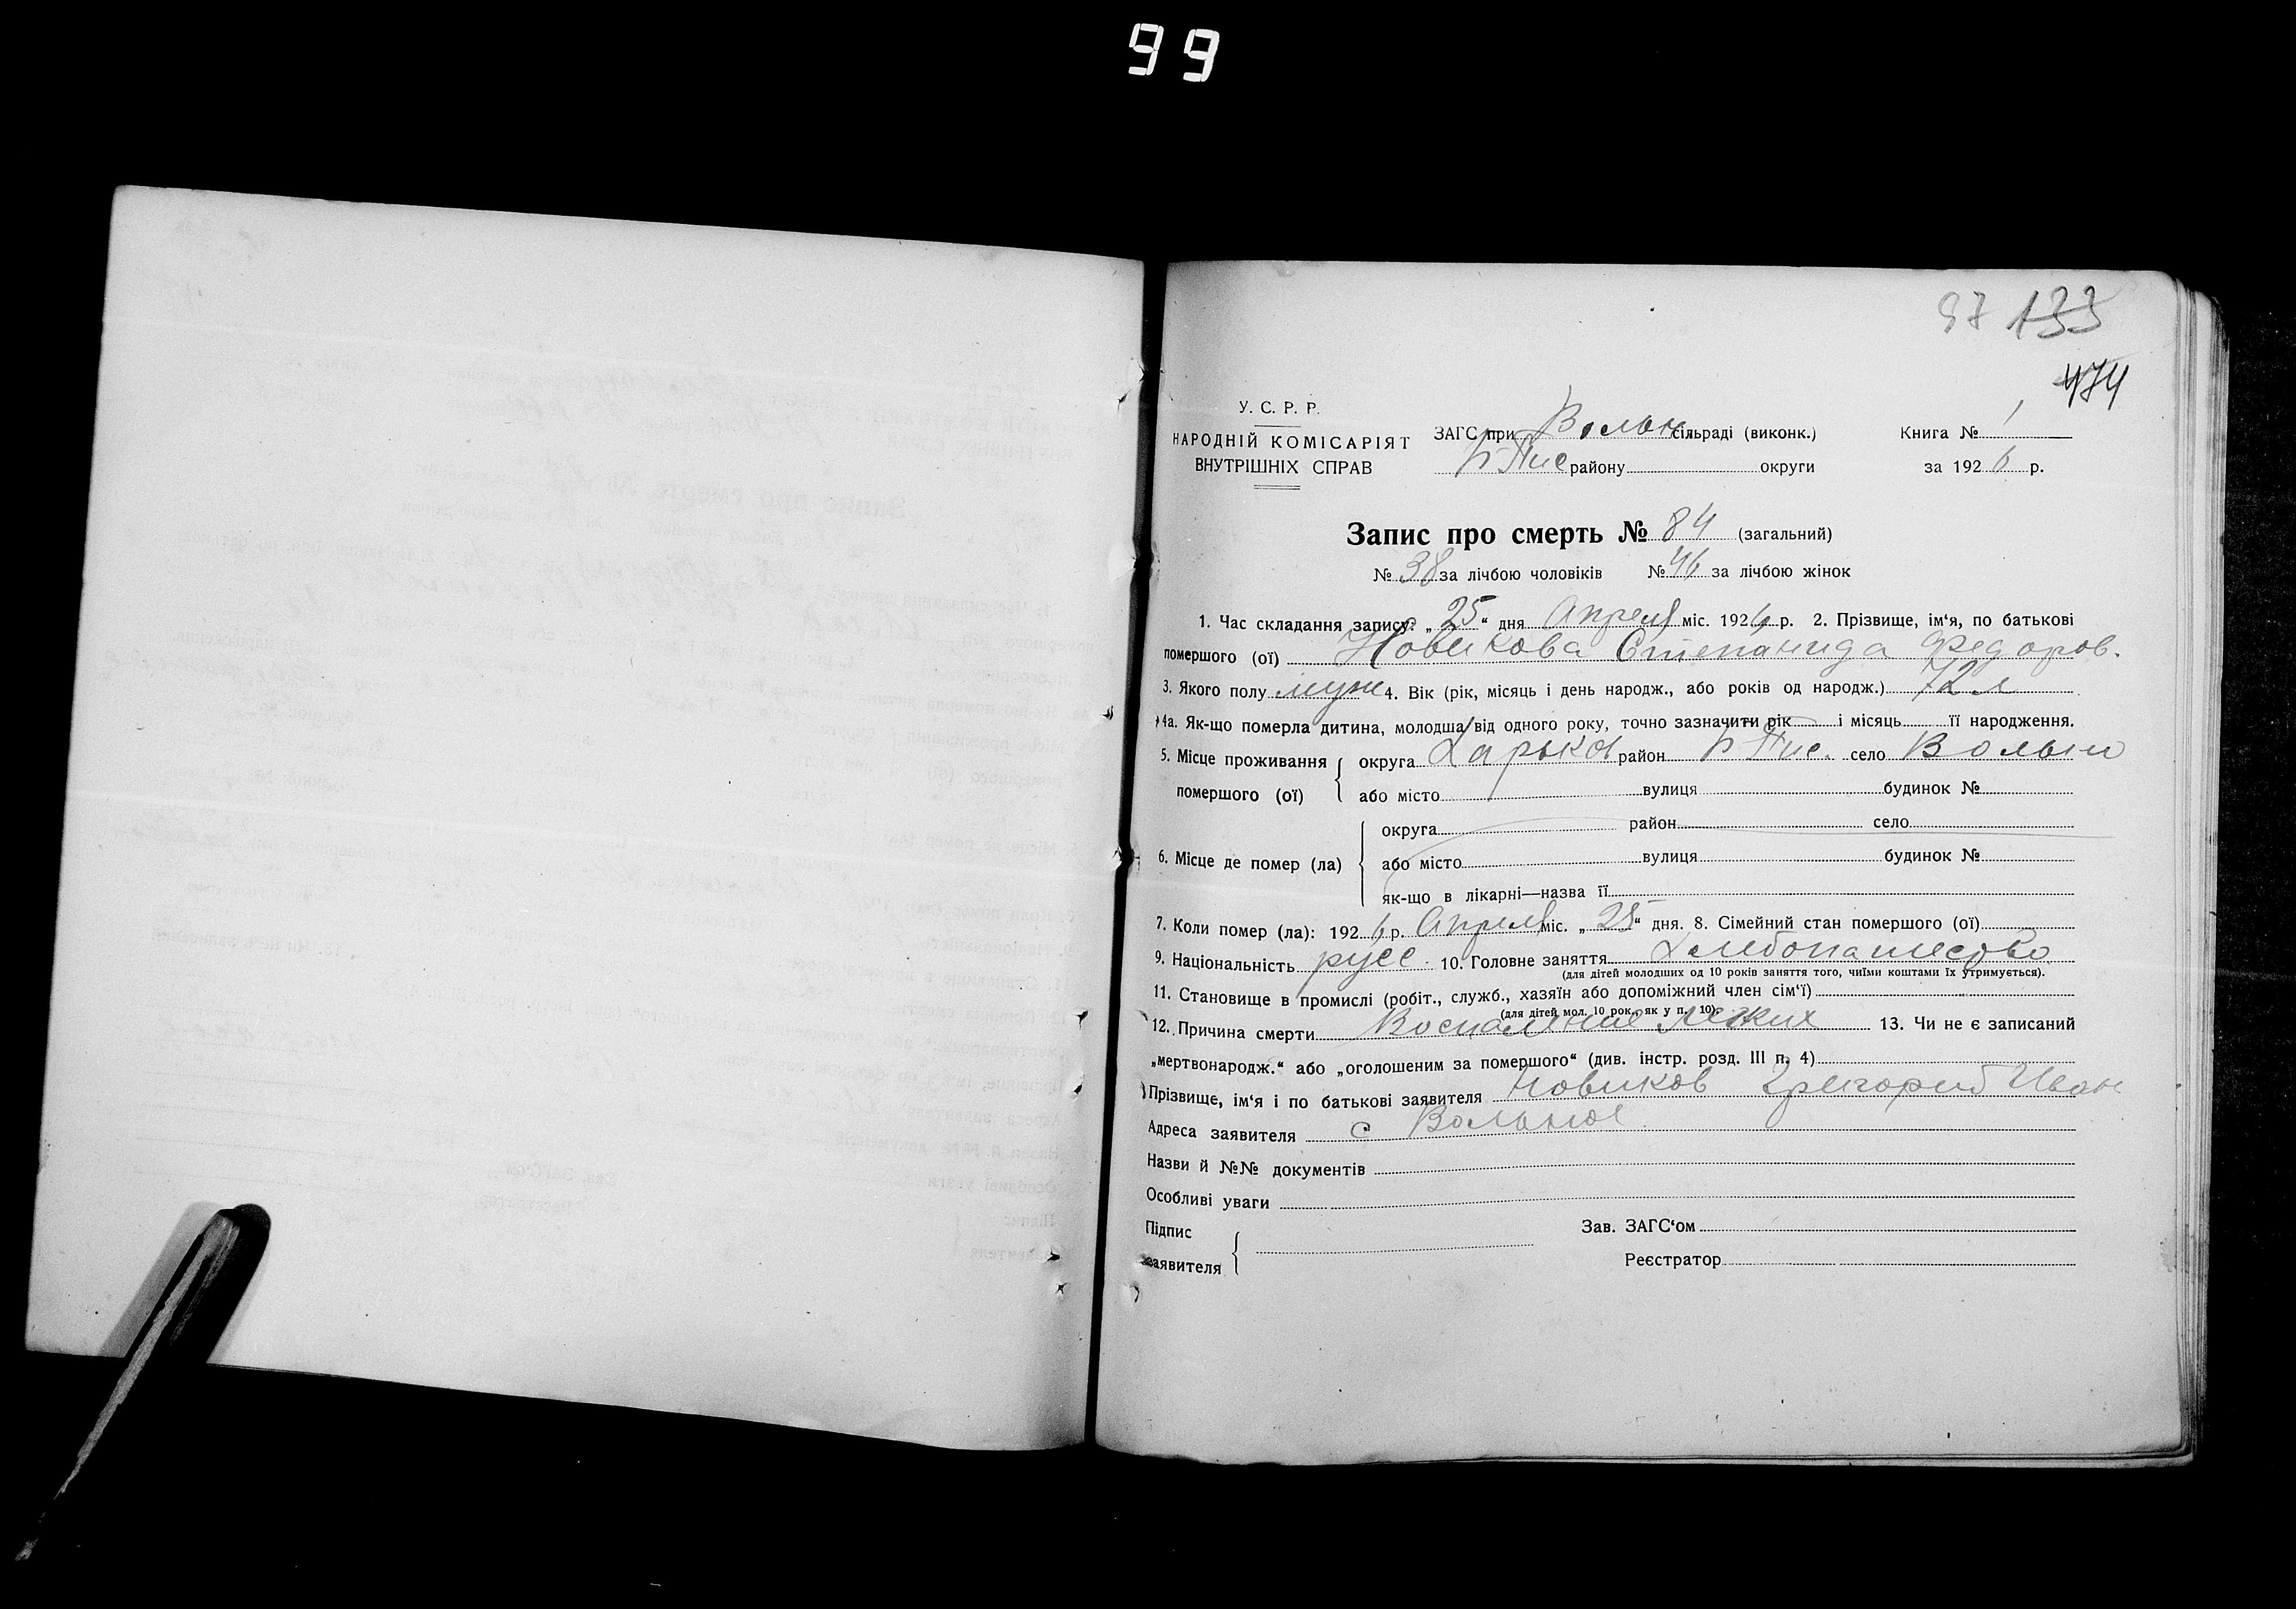 99
97 133
474
У. С. Р. Р.
НАРОДНІЙ КОМІСАРІЯТ
ВНУТРІШНІХ СПРАВ
ЗАГС при Вольн сільраді (виконк.)
Б-Пис району округи
Книга № 1
за 1926 р.
Запис про смерть № 84 (загальний)
№ 38 за лічбою чоловіків № 46 за лічбою жінок
1. Час складання запису: „25“ дня Апреля міс. 1926 р. 2. Прізвище, ім‘я, по батькові
помершого (ої) Новикова Степанида Федоров.
3. Якого полу муж 4. Вік (рік, місяць і день народж., або років од народж.) 72 л
4а. Як-що померла дитина, молодша від одного року, точно зазначити рік і місяць її народження.
5. Місце проживання помершого (ої) округа Харьков район Б Пис. село Вольно
або місто вулиця будинок №
6. Місце де помер (ла) округа район село
або місто вулиця будинок №
як-що в лікарні—назва її
7. Коли помер (ла): 1926 р. Апреля міс. „25“ дня. 8. Сімейний стан помершого (ої)
9. Національність русс. 10. Головне заняття Хлебопашество
(для дітей молодших од 10 років заняття того, чиїми коштами їх утримується).
11. Становище в промислі (робіт., служб., хазяїн або допоміжний член сім‘ї)
(для дітей мол. 10 рок., як у п. 10).
12. Причина смерти Воспаление легких 13. Чи не є записаний
„мертвонародж.“ або „оголошеним за помершого“ (див. інстр. розд. III п. 4)
Прізвище, ім‘я і по батькові заявителя Новиков Григорий Иван
Адреса заявителя с Вольное
Назви й №№ документів
Особливі уваги
Підпис заявителя
Зав. ЗАГС‘ом
Реєстратор